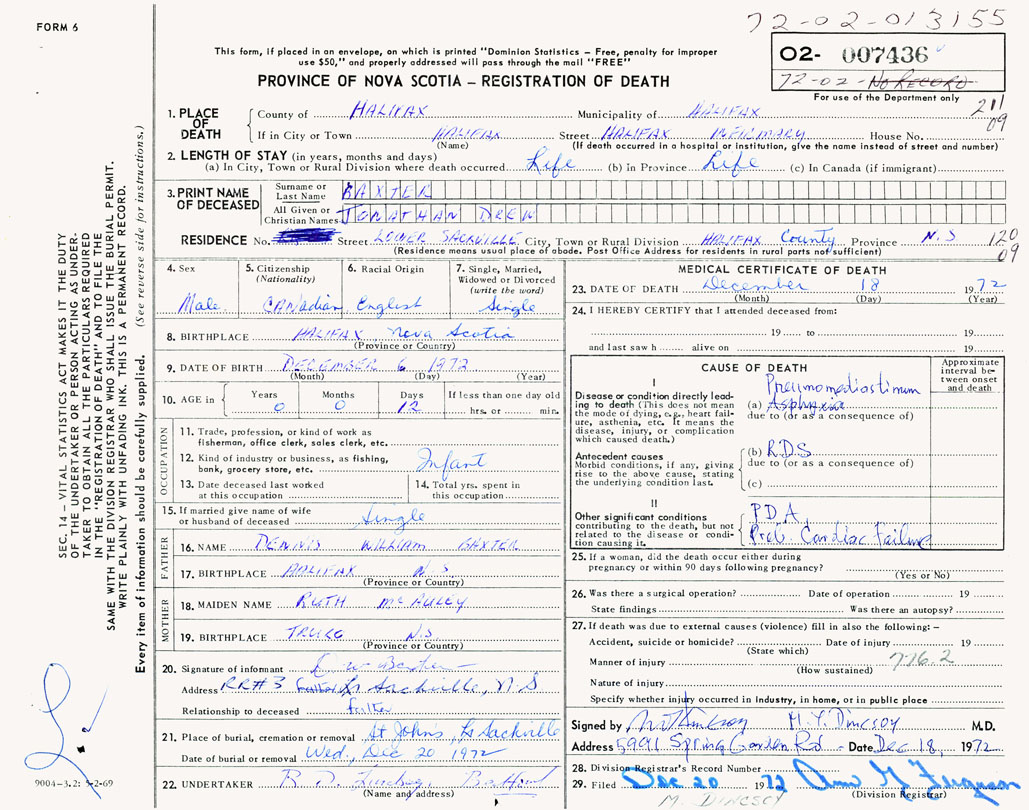 FORM 6
72-02-013155
This form, if placed in an envelope, on which is printed "Dominion Statistics – Free, penalty for improper
use $50," and properly addressed will pass through the mail "FREE"
02- 007436
72-02- NO RECORD
For use of the Department only
PROVINCE OF NOVA SCOTIA – REGISTRATION OF DEATH
211
09
1. PLACE OF DEATH
County of HALIFAX Municipality of HALIFAX
If in City or Town HALIFAX Street HALIFAX INFIRMARY House No.
(Name) (If death occurred in a hospital or institution, give the name instead of street and number)
2. LENGTH OF STAY (in years, months and days)
(a) In City, Town or Rural Division where death occurred Life (b) In Province Life (c) In Canada (if immigrant)
3. PRINT NAME OF DECEASED
Surname or Last Name BAXTER
All Given or Christian Names JONATHAN DREW
RESIDENCE No. Street LOWER SACKVILLE City, Town or Rural Division HALIFAX County Province N.S
(Residence means usual place of abode. Post Office Address for residents in rural parts not sufficient)
120
09
4. Sex
Male
5. Citizenship
(Nationality)
CANADIAN
6. Racial Origin
English
7. Single, Married,
Widowed or Divorced
(write the word)
Single
8. BIRTHPLACE HALIFAX Nova Scotia
(Province or Country)
9. DATE OF BIRTH DECEMBER 6 1972
(Month) (Day) (Year)
10. AGE in
Years Months Days If less than one day old
0 0 12 hrs. or min.
OCCUPATION
11. Trade, profession, or kind of work as
fisherman, office clerk, sales clerk, etc.
12. Kind of industry or business, as fishing,
bank, grocery store, etc. Infant
13. Date deceased last worked
at this occupation
14. Total yrs. spent in
this occupation
15. If married give name of wife
or husband of deceased Single
FATHER
16. NAME DENNIS WILLIAM BAXTER
17. BIRTHPLACE HALIFAX N.S.
(Province or Country)
MOTHER
18. MAIDEN NAME RUTH McAULEY
19. BIRTHPLACE TRURO N.S.
(Province or Country)
20. Signature of informant D W Baxter
Address RR#3 Sackville, N.S
Relationship to deceased father
21. Place of burial, cremation or removal St John's, L. Sackville
Date of burial or removal Wed, Dec 20 1972
22. UNDERTAKER
(Name and address)
MEDICAL CERTIFICATE OF DEATH
23. DATE OF DEATH December 18 1972
(Month) (Day) (Year)
24. I HEREBY CERTIFY that I attended deceased from:
19 to 19
and last saw h alive on 19
CAUSE OF DEATH
Approximate
interval be-
tween onset
and death
I
Disease or condition directly lead-
ing to death (This does not mean
the mode of dying, e.g., heart fail-
ure, asthenia, etc. It means the
disease, injury, or complication
which caused death.)
Pneumomediastinum
(a) Asphyxia
due to (or as a consequence of)
Antecedent causes
Morbid conditions, if any, giving
rise to the above cause, stating
the underlying condition last.
(b) R.D.S
due to (or as a consequence of)
(c)
II
Other significant conditions
contributing to the death, but not
related to the disease or condi-
tion causing it.
P.D.A.
Prob. Cardiac Failure
25. If a woman, did the death occur either during
pregnancy or within 90 days following pregnancy?
(Yes or No)
26. Was there a surgical operation? Date of operation 19
State findings Was there an autopsy?
27. If death was due to external causes (violence) fill in also the following: –
Accident, suicide or homicide? Date of injury 19
(State which)
776.2
Manner of injury
(How sustained)
Nature of injury
Specify whether injury occurred in industry, in home, or in public place
Signed by M. Y. DINCSOY M.D.
Address 5991 Spring Garden Rd Date Dec 18, 1972
28. Division Registrar's Record Number
29. Filed Dec 20 1972 Ann G Ferguson
(Division Registrar)
M. DINCSOY
SEC. 14 – VITAL STATISTICS ACT MAKES IT THE DUTY
OF THE UNDERTAKER OR PERSON ACTING AS UNDER-
TAKER TO OBTAIN ALL THE PARTICULARS REQUIRED
IN THE "REGISTRATION OF DEATH" AND TO FILE THE
SAME WITH THE DIVISION REGISTRAR WHO SHALL ISSUE THE BURIAL PERMIT.
WRITE PLAINLY WITH UNFADING INK. THIS IS A PERMANENT RECORD.
Every item of information should be carefully supplied. (See reverse side for instructions.)
9004-3.2: 5-2-69